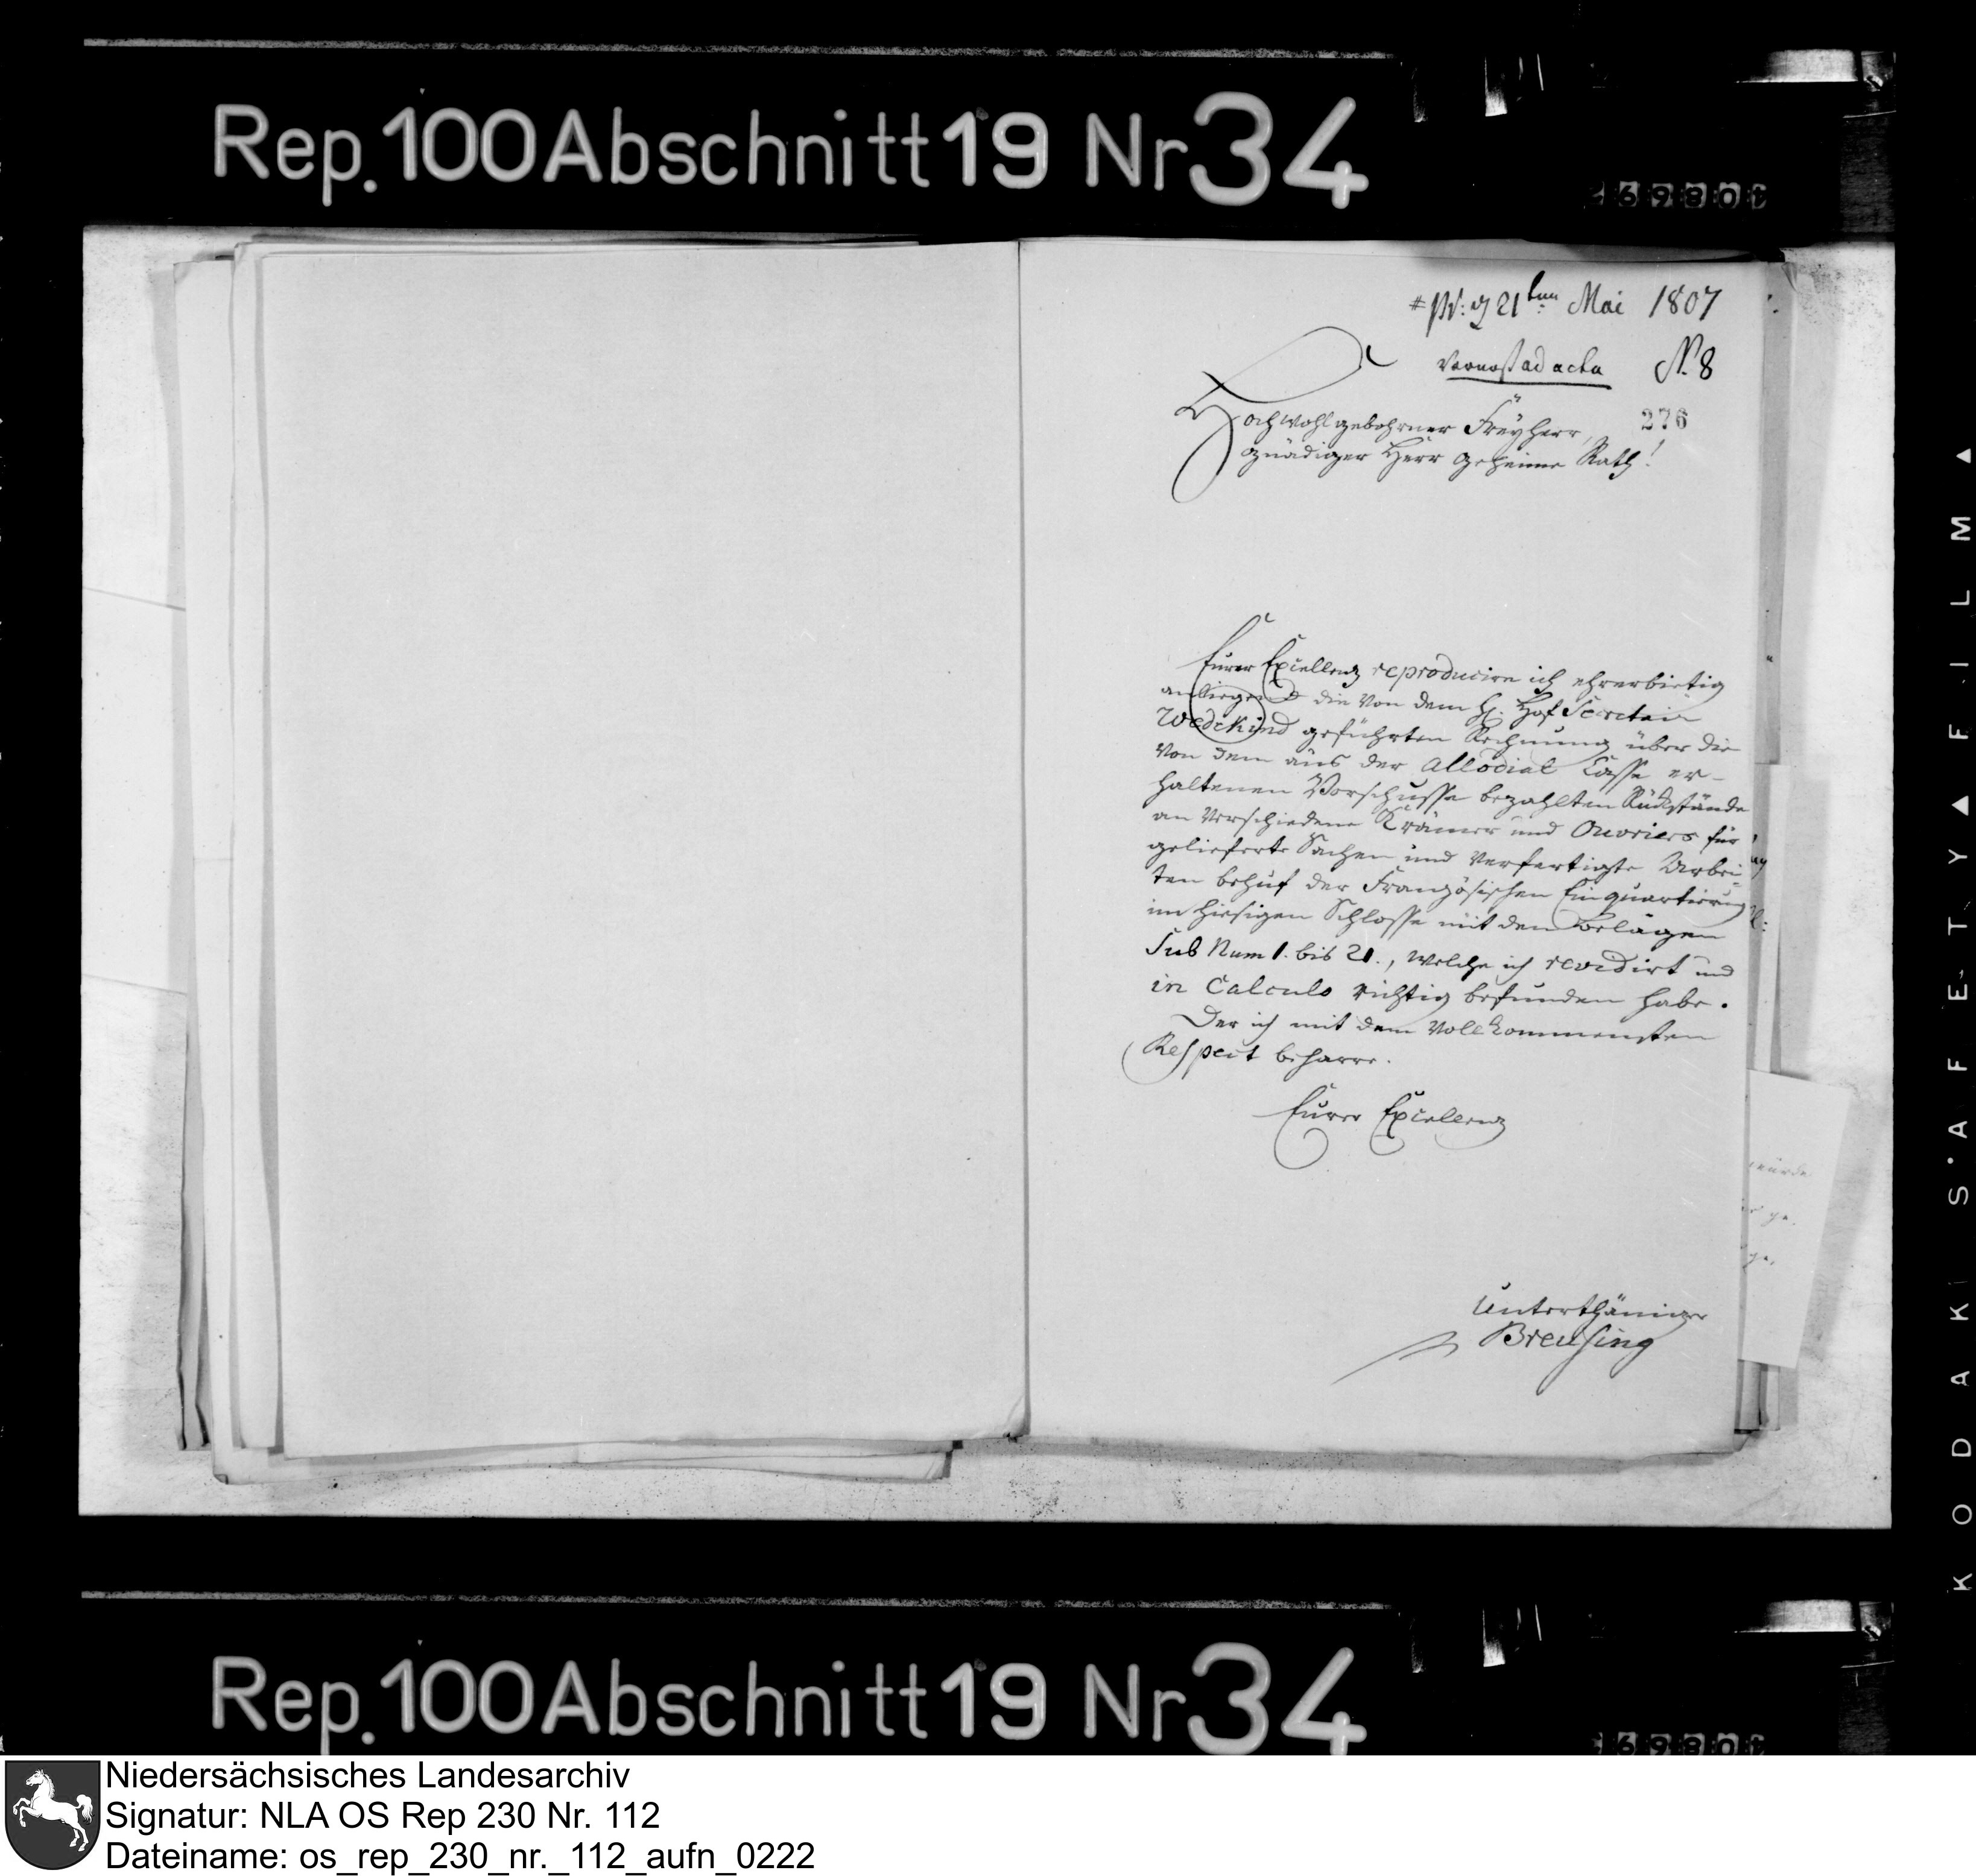 Rep. 100 Abschnitt 19 Nr 34
pr: d 21ten Mai 1807
ad acta N. 8
Hochwohlgebohrner Freyherr, 276
gnädiger Herr Geheime Rath!
Eurer Excellenz reproducire ich ehrerbietig
anliegend die von dem H. Hof Secretair
Wedekind geführten Rechnung über die
von dem aus der Allodial Casse er-
haltenen Vorschusse bezahlten Rückstände
an verschiedene Krämer und Ouvriers für
gelieferte Sachen und verfertigte Arbei-
ten behuf der Französischen Einquartirung
im hiesigen Schlosse mit den Belägen
sub Num 1. bis 21., welche ich revidirt und
in Calculo richtig befunden habe.
Der ich mit dem vollkommensten
Respect beharre.
Eurer Excellenz
unterthäniger
Breusing
KODAK SAFETY FILM
Rep. 100 Abschnitt 19 Nr 34
Niedersächsisches Landesarchiv
Signatur: NLA OS Rep 230 Nr. 112
Dateiname: os_rep_230_nr._112_aufn_0222